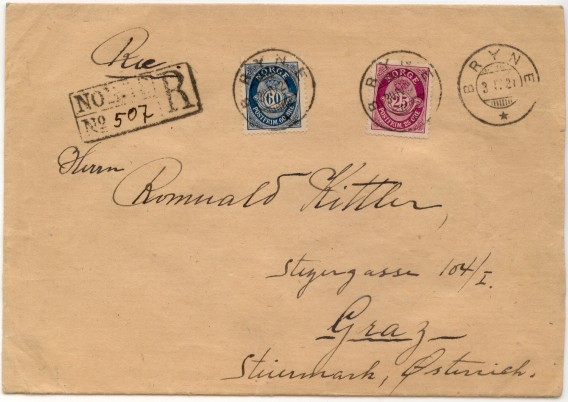 Rec
NORGE
R
No 507
BRYNE
NORGE
60
POSTFRIM. 60 ØRE
BRYNE
NORGE
25
POSTFRIM. 25 ØRE
BRYNE
Herrn
Romuald Kittler,
Steyergasse 104/I.
Graz
Steiermark, Österreich.